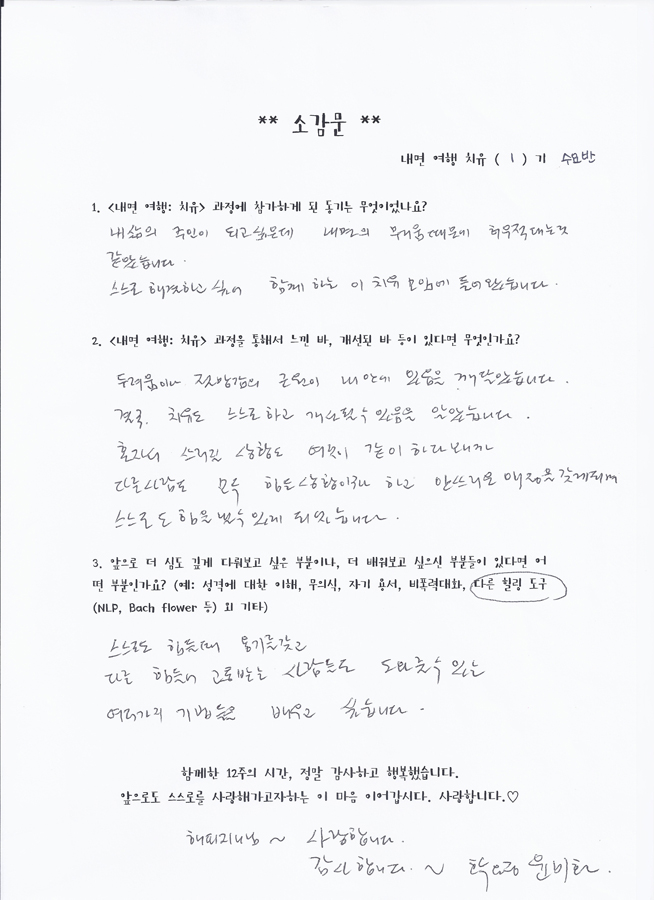 ** 소감문 **
내면 여행 치유 ( 1 ) 기 수요반
1. <내면 여행: 치유> 과정에 참가하게 된 동기는 무엇이었나요?
내삶의 주인이 되고싶은데 내면의 무거움때문에 허우적대는것
같았습니다.
스스로 해결하고 싶어 함께 하는 이 치유 모임에 들어왔습니다.
2. <내면 여행: 치유> 과정을 통해서 느낀 바, 개선된 바 등이 있다면 무엇인가요?
두려움이나 절망감의 근원이 내안에 있음을 깨달았습니다.
결국, 치유도 스스로하고 개선될수 있음을 알았습니다.
혼자서 쓰러질 상황도 여럿이 같이 하다보니까
다른사람도 모두 힘든상황이구나 하고 안쓰러운 애정을 갖게되며
스스로도 힘을낼수 있게 되었습니다.
3. 앞으로 더 심도 깊게 다뤄보고 싶은 부분이나, 더 배워보고 싶으신 부분들이 있다면 어
떤 부분인가요? (예: 성격에 대한 이해, 무의식, 자기 용서, 비폭력대화, 다른 힐링 도구
(NLP, Bach flower 등) 외 기타)
스스로도 힘들때 용기를갖고
다른 힘들어 고통받는 사람들도 도와줄수 있는
여러가지 기법들을 배우고 싶습니다.
함께한 12주의 시간, 정말 감사하고 행복했습니다.
앞으로도 스스로를 사랑해가고자하는 이 마음 이어갑시다. 사랑합니다.♡
해피지나님 ~ 사랑합니다.
감사합니다. ~